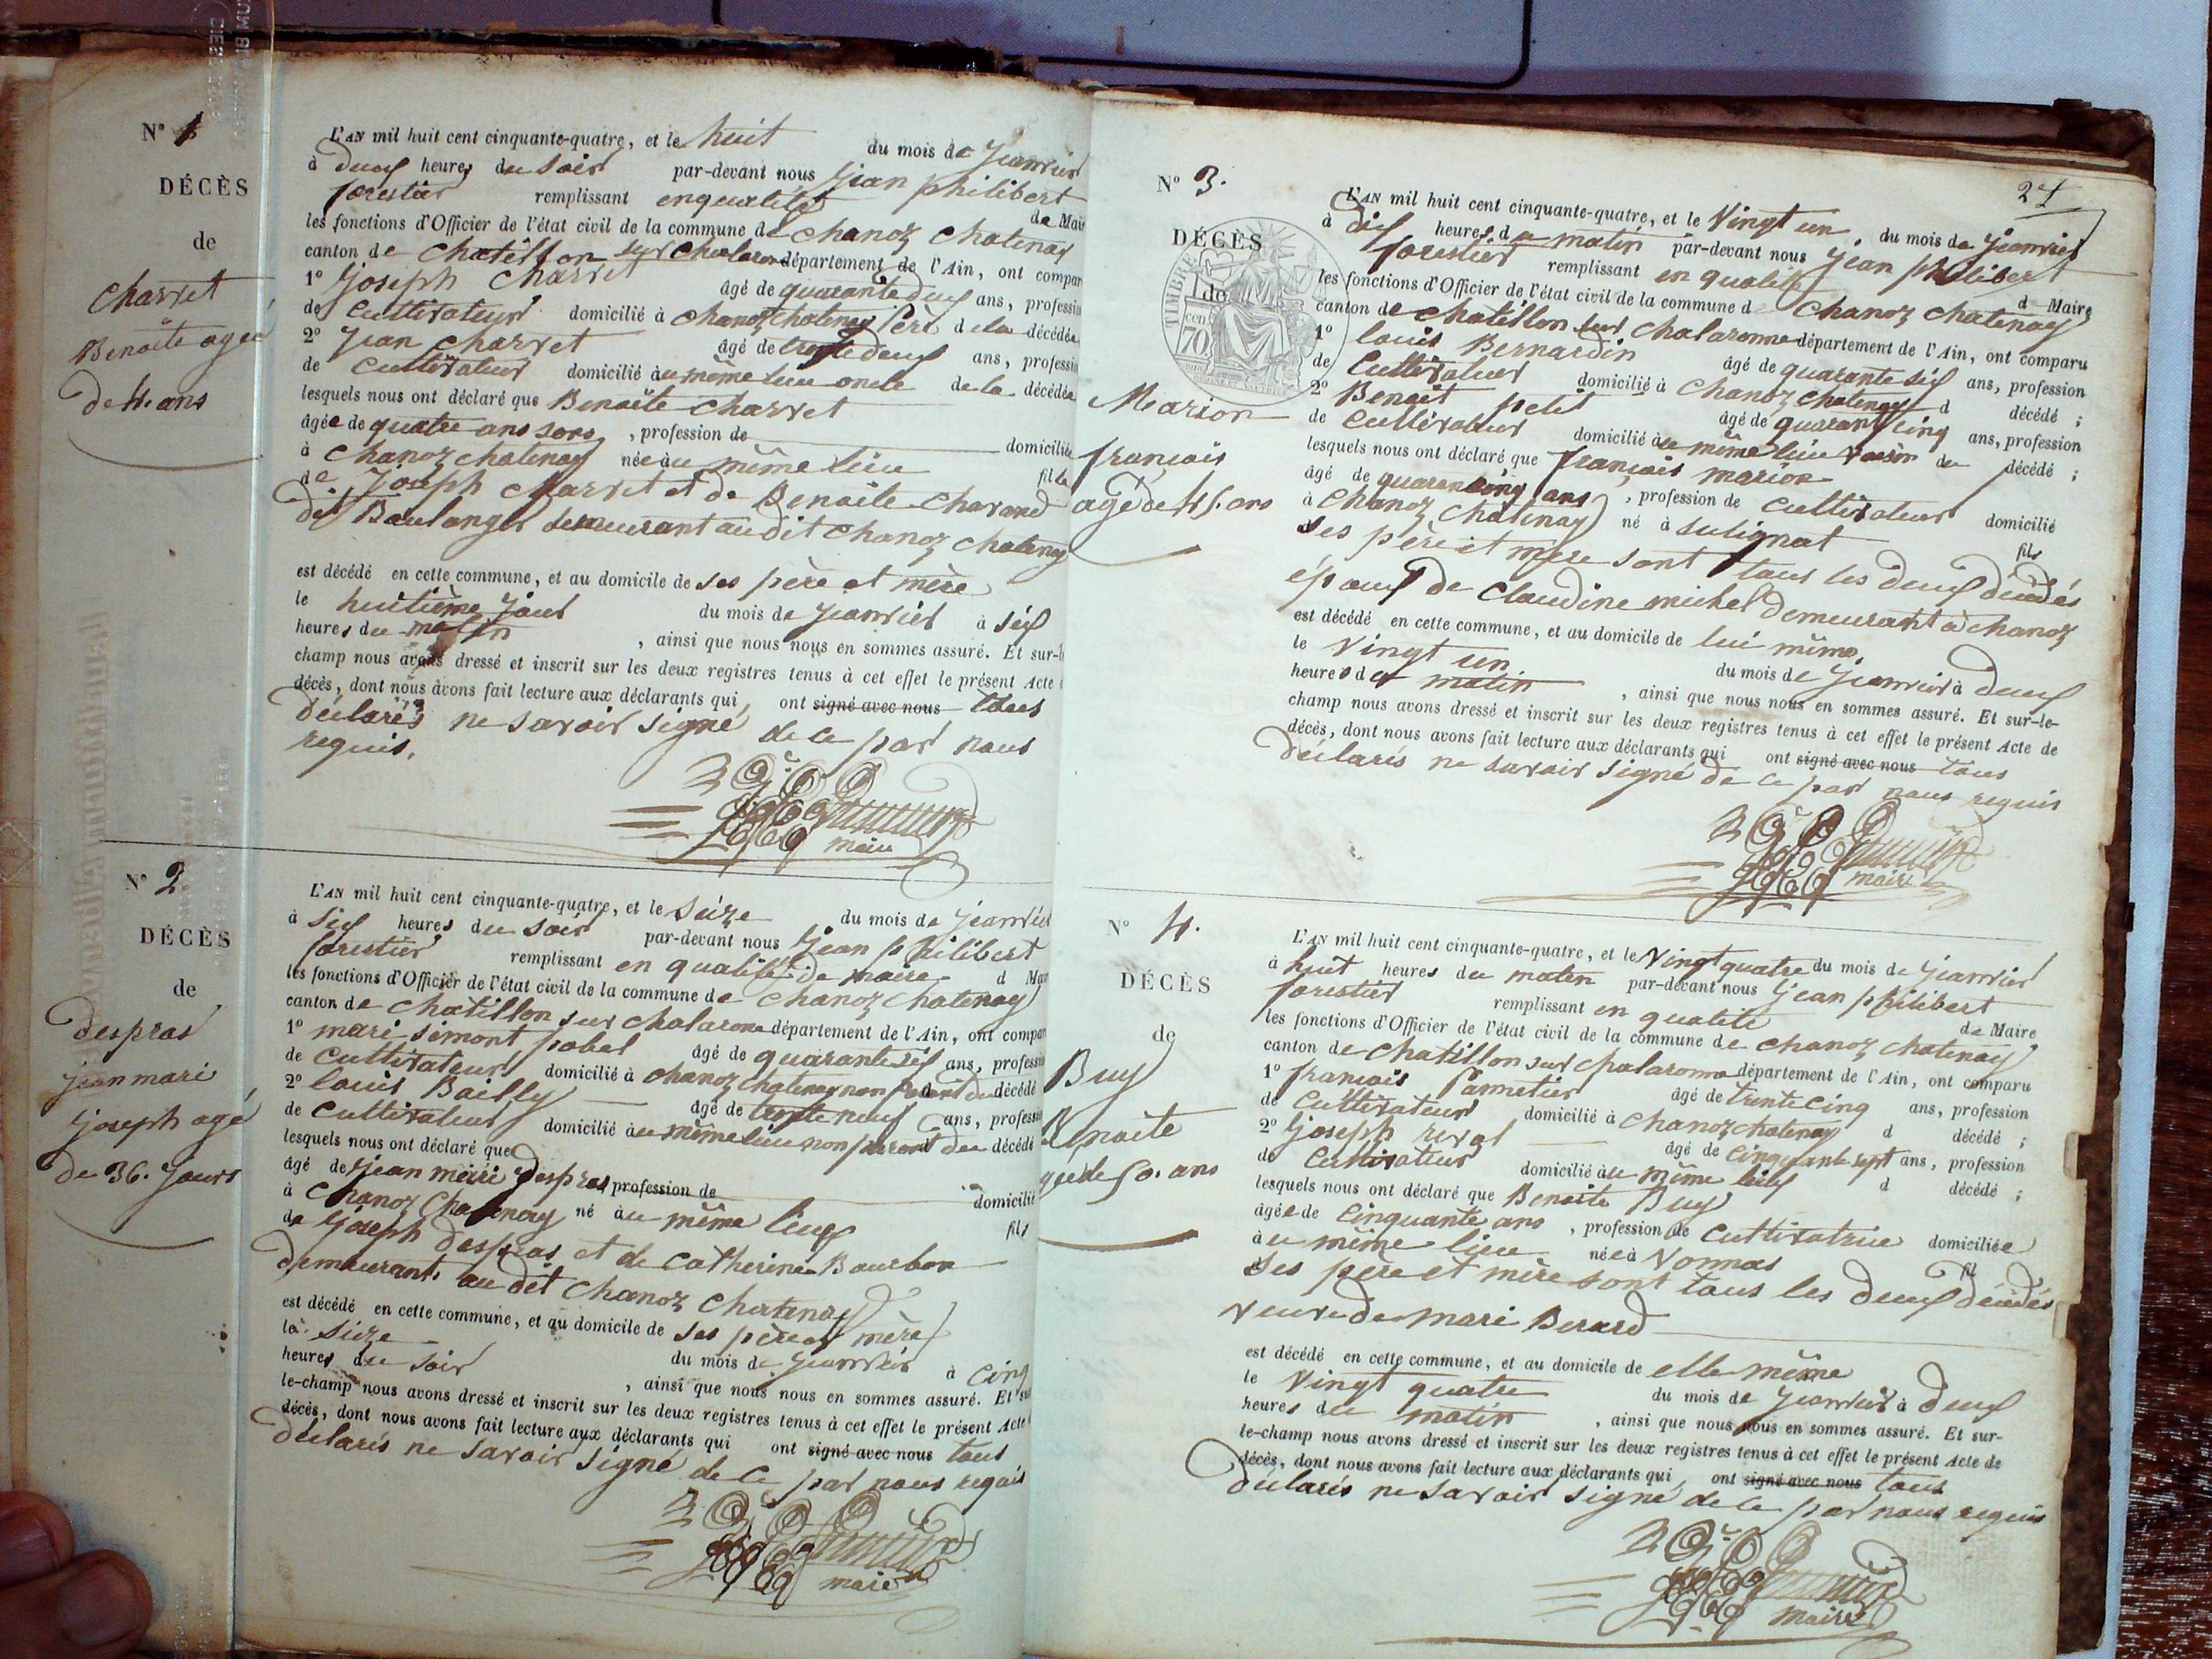 N° 1
DÉCÈS
de
Charvet
Benoite agée
de 4. ans
L'AN mil huit cent cinquante-quatre, et le huit du mois de Janvier
à deux heures du soir par-devant nous Jean philibert
forestier remplissant en qualité de Mair
les fonctions d'Officier de l'état civil de la commune de Chanoz Chatenay
canton de Chatillon sur Chalaronne département de l'Ain, ont compar
1° Joseph Charvet âgé de quarante deux ans, professio
de Cultivateur domicilié à Chanoz Chatenay Père de la décédée
2° Jean Charvet âgé de trente deux ans, professio
de Cultivateur domicilié au même lieu oncle de la décédée
lesquels nous ont déclaré que Benoite Charvet
âgée de quatre ans sors, profession de domiciliée
à Chanoz Chatenay née au même lieu fille
de Joseph Charvet et de Benoite Charond
dit Boulanger demeurant audit Chanoz Chatenay
est décédé en cette commune, et au domicile de ses père et mère
le huitième jour du mois de Janvier à six
heures du matin, ainsi que nous nous en sommes assuré. Et sur-le
champ nous avons dressé et inscrit sur les deux registres tenus à cet effet le présent Acte
décès, dont nous avons fait lecture aux déclarants qui ont signé avec nous tous
déclarés ne savoir signé de ce par nous
requis.
maire
N° 2
DÉCÈS
de
despras
jean mari
Joseph agé
de 36. Jours
L'AN mil huit cent cinquante-quatre, et le seize du mois de Janvier
à six heures du soir par-devant nous Jean philibert
forestier remplissant en qualité de maire d Mair
les fonctions d'Officier de l'état civil de la commune de Chanoz Chatenay
canton de Chatillon sur Chalarone département de l'Ain, ont compar
1° mari simont pobel âgé de quarante six ans, professio
de Cultivateur domicilié à Chanoz Chatenay non parent du décédé
2° louis Bailly âgé de trente neuf ans, professio
de Cultivateur domicilié au même lieu non parent du décédé
lesquels nous ont déclaré que
âgé de jean mari despras, profession de domicilié
à Chanoz Chatenay né au même lieu fils
de Joseph despras et de Catherine Bourbon
demeurant au dit Chanoz Chatenay
est décédé en cette commune, et au domicile de ses père et mère
le seize du mois de Janvier à cinq
heures du soir, ainsi que nous nous en sommes assuré. Et sur
le-champ nous avons dressé et inscrit sur les deux registres tenus à cet effet le présent Acte
décès, dont nous avons fait lecture aux déclarants qui ont signé avec nous tous
déclarés ne savoir signé de ce par nous requis
maire
27
N° 3.
DÉCÈS
TIMBRE
70
Marion
françois
agé de 45. ans
L'AN mil huit cent cinquante-quatre, et le Vingt un, du mois de Janvier
à dix heures du matin par-devant nous Jean philibert
forestier remplissant en qualité d Maire
les fonctions d'Officier de l'état civil de la commune d Chanoz Chatenay
canton de Chatillon sur Chalaronne département de l'Ain, ont comparu
1° louis Bernardin âgé de quarante six ans, profession
de Cultivateur domicilié à Chanoz Chatenay d décédé ;
2° Benoit petit âgé de quarant cinq ans, profession
de Cultivateur domicilié au même lieu voisin du décédé ;
lesquels nous ont déclaré que françois marion
âgé de quarancinq ans, profession de Cultivateur domicilié
à Chanoz Chatenay né à sulignat fils
ses père et mère sont tous les deux décédés
époux de Claudine michel demeurant à Chanoz
est décédé en cette commune, et au domicile de lui même,
le Vingt un du mois de Janvier à deux
heures du matin, ainsi que nous nous en sommes assuré. Et sur-le-
champ nous avons dressé et inscrit sur les deux registres tenus à cet effet le présent Acte de
décès, dont nous avons fait lecture aux déclarants qui ont signé avec nous tous
déclarés ne savoir signé de ce par nous requis
maire
N° 4.
DÉCÈS
de
Buy
Benoite
agée de 50. ans
L'AN mil huit cent cinquante-quatre, et le Vingt quatre du mois de Janvier
à huit heures du matin par-devant nous Jean philibert
forestier remplissant en qualité de Maire
les fonctions d'Officier de l'état civil de la commune de Chanoz Chatenay
canton de Chatillon sur Chalaronne département de l'Ain, ont comparu
1° françois Pannetier âgé de trente cinq ans, profession
de Cultivateur domicilié à Chanoz Chatenay d décédé ;
2° Joseph reval âgé de Cinquante sept ans, profession
de Cultivateur domicilié au même lieu d décédé ;
lesquels nous ont déclaré que Benoite Buy
âgée de Cinquante ans, profession de Cultivatrice domiciliée
au même lieu née à Vonnas fil
ses père et mère sont tous les deux décédés
veuve de mari Berard
est décédé en cette commune, et au domicile de elle même
le Vingt quatre du mois de Janvier à deux
heures du matin, ainsi que nous nous en sommes assuré. Et sur-
le-champ nous avons dressé et inscrit sur les deux registres tenus à cet effet le présent Acte de
décès, dont nous avons fait lecture aux déclarants qui ont signé avec nous tous
déclarés ne savoir signé de ce par nous requis
maire